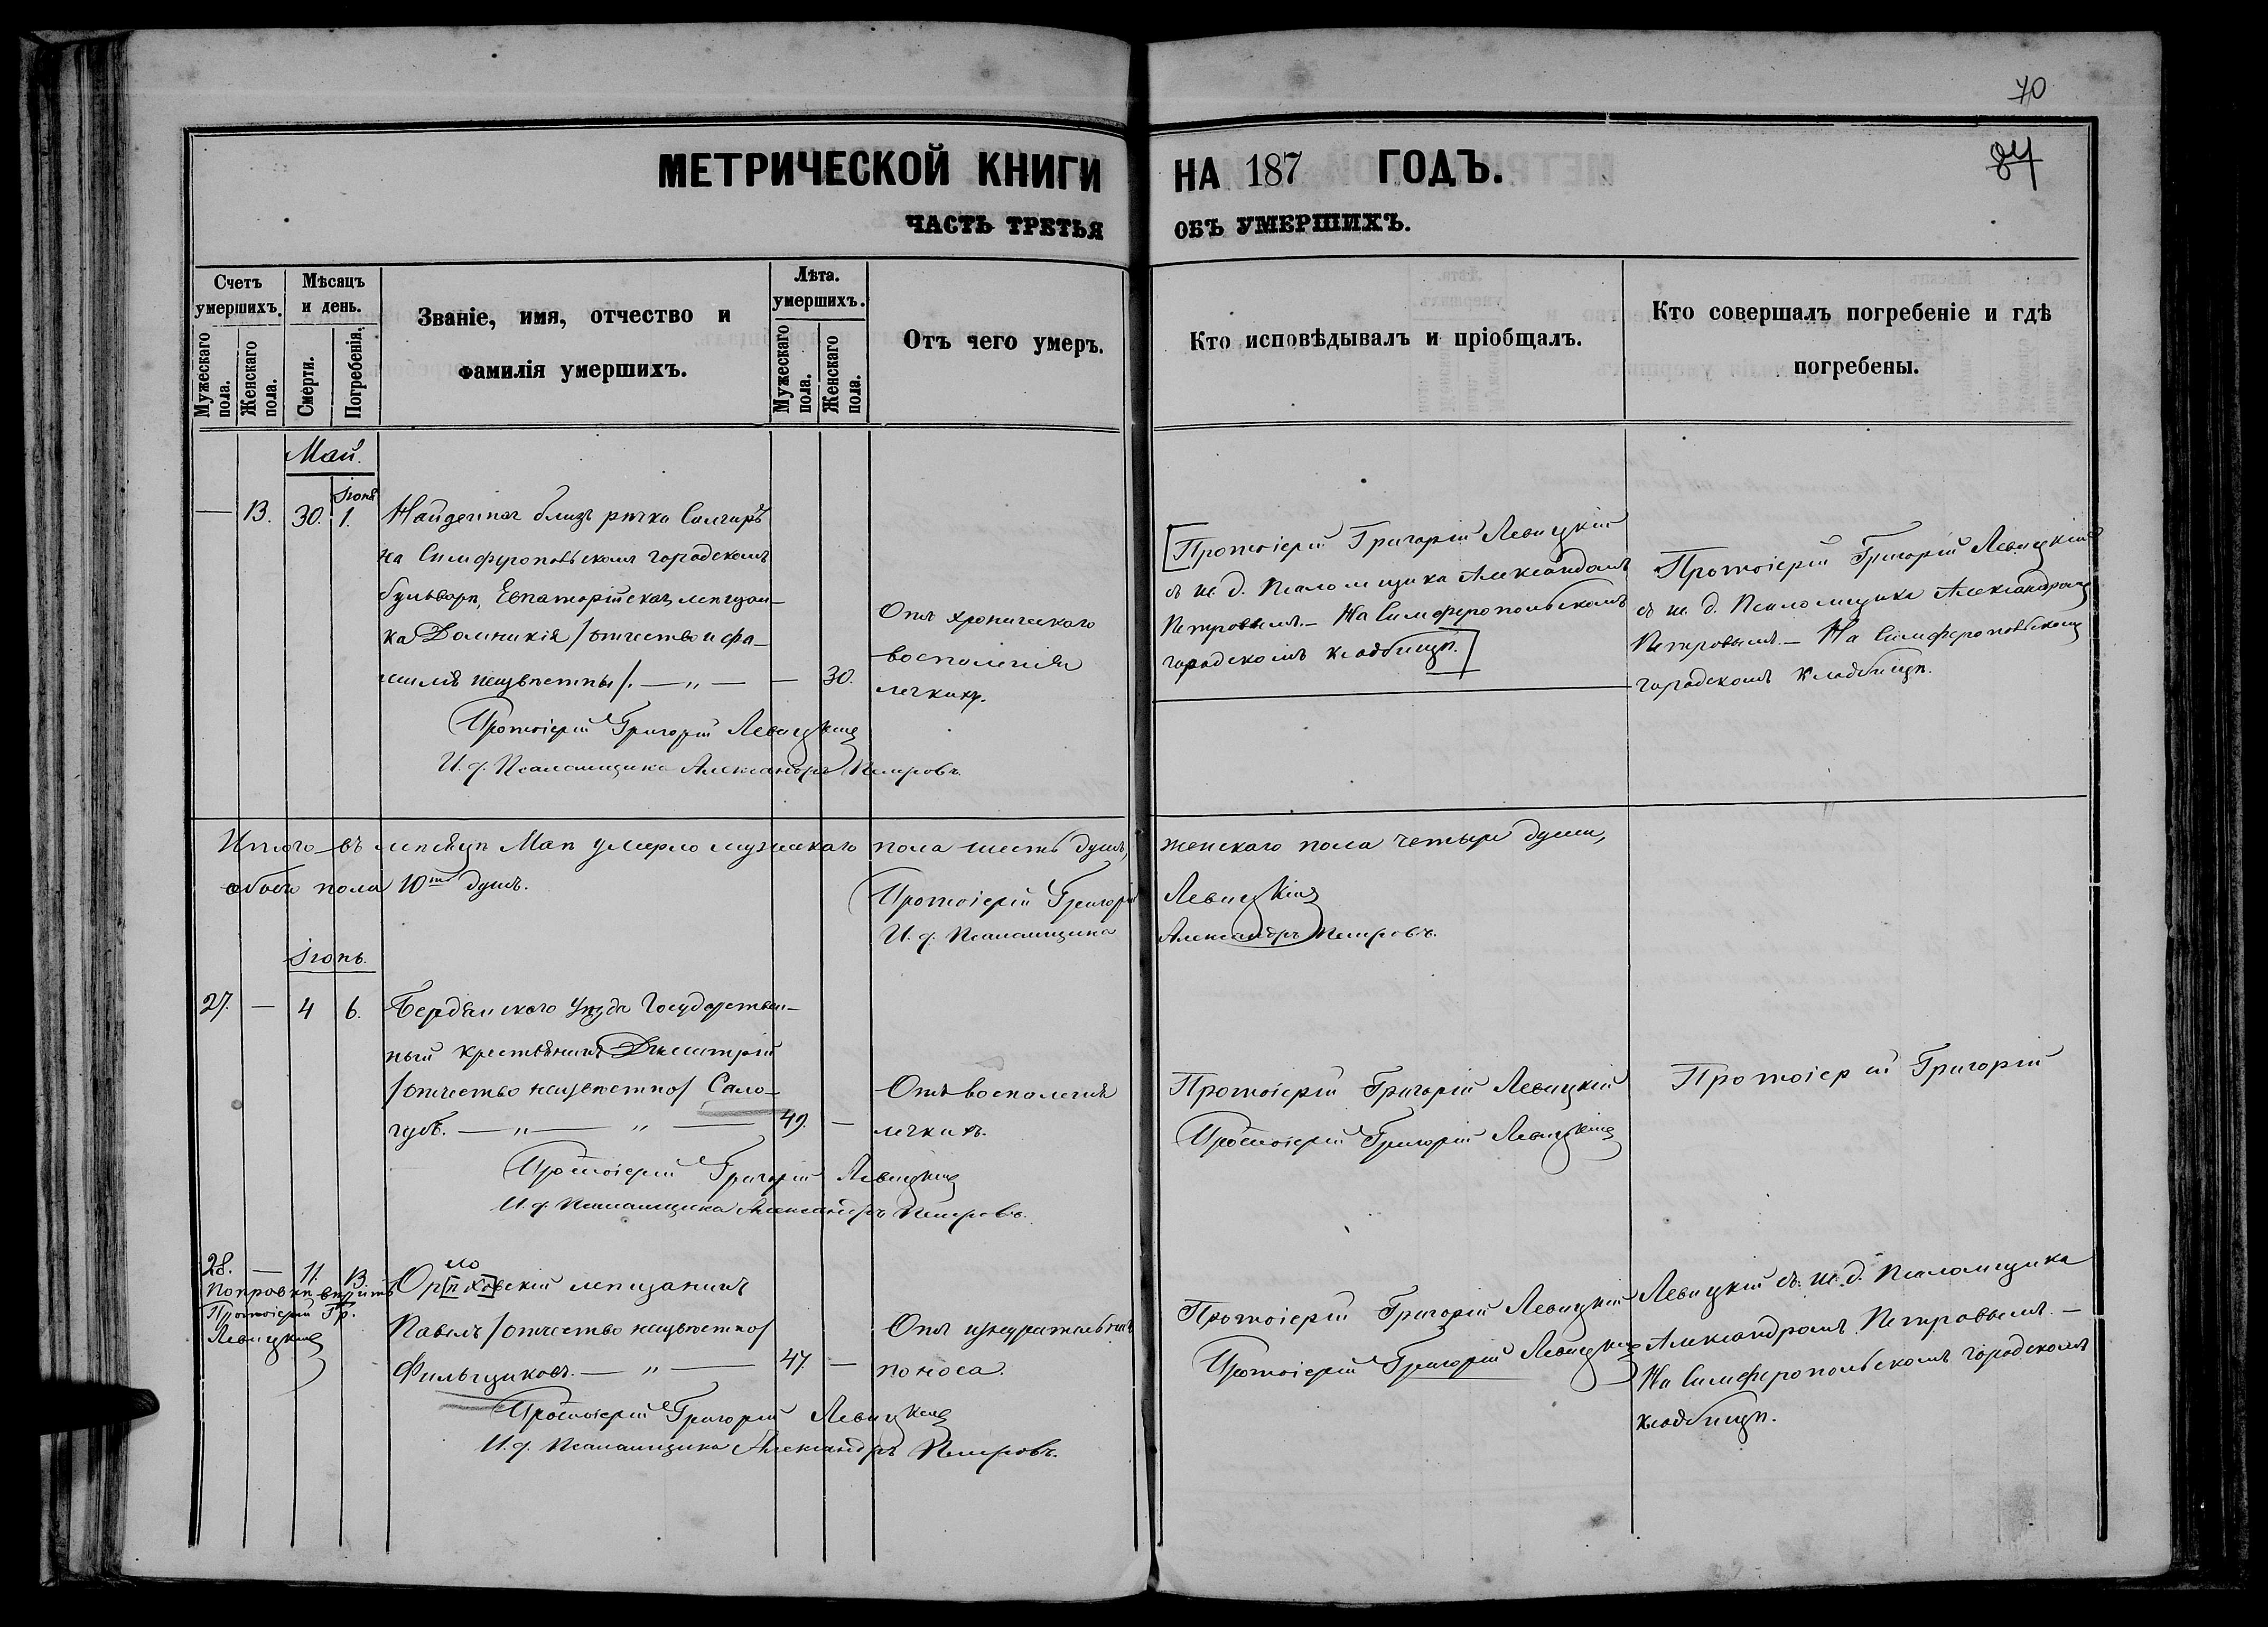 70
84
МЕТРИЧЕСКОЙ КНИГИ НА 187 ГОДЪ.
ЧАСТЬ ТРЕТЬЯ ОБЪ УМЕРШИХЪ.
Счетъ умершихъ.
Мужескаго пола.
Женскаго пола.
Мѣсяцъ и день.
Смерти.
Погребенія.
Званіе, имя, отчество и
фамилія умершихъ.
Лѣта умершихъ.
Мужескаго пола.
Женскаго пола.
Отъ чего умеръ.
Кто исповѣдывалъ и пріобщалъ.
Кто совершалъ погребеніе и гдѣ
погребены.
Май.
Іюня
— 13. 30. 1. Найденная близъ рѣчки Салгиръ
на Симферопольскомъ городскомъ
бульварѣ, Евпаторійская мѣщан-
ка Домникія /отчество и фа-
милія неизвѣстны/. — „ — — 30.
Отъ хроническаго
воспаленія
легкихъ.
Протоіерей Григорій Левицкій
съ и. д. Псаломщика Александромъ
Петровымъ. — На Симферопольскомъ
городскомъ кладбищѣ.
Протоіерей Григорій Левицкій
съ и. д. Псаломщика Александромъ
Петровымъ. — На Симферопольскомъ
городскомъ кладбищѣ.
Протоіерей Григорій Левицкій
И. д. Псаломщика Александръ Петровъ.
Итого въ мѣсяцѣ Маѣ умерло мужескаго пола шесть душъ, женскаго пола четыре души,
обоего пола 10ть душъ.
Протоіерей Григорій Левицкій
И. д. Псаломщика Александръ Петровъ.
Іюнь.
27. — 4 6. Бердянскаго уѣзда Государствен-
ный крестьянинъ Димитрій
/отчество неизвѣстно/ Сало-
губъ. — „ — „ — 49. —
Отъ воспаленія
легкихъ.
Протоіерей Григорій Левицкій
Протоіерей Григорій Левицкій
Протоіерей Григорій
Протоіерей Григорій Левицкій
И. д. Псаломщика Александръ Петровъ.
28. — 11. 13.
Поправкѣ вѣрить
Протоіерей Гр.
Левицкій
ло
Орѣховскій мѣщанинъ
Павелъ /отчество неизвѣстно/
Фильчиковъ. — „ — 47. —
Отъ изнурительнаго
поноса.
Протоіерей Григорій Левицкій
Протоіерей Григорій Левицкій
Левицкій съ и. д. Псаломщика
Александромъ Петровымъ. —
На Симферопольскомъ городскомъ
кладбищѣ.
Протоіерей Григорій Левицкій
И. д. Псаломщика Александръ Петровъ.